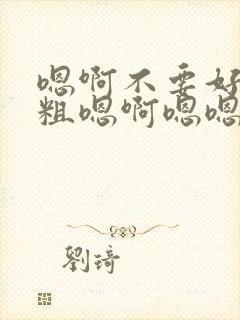 嗯啊不要好
粗嗯啊嗯嗯
劉琦